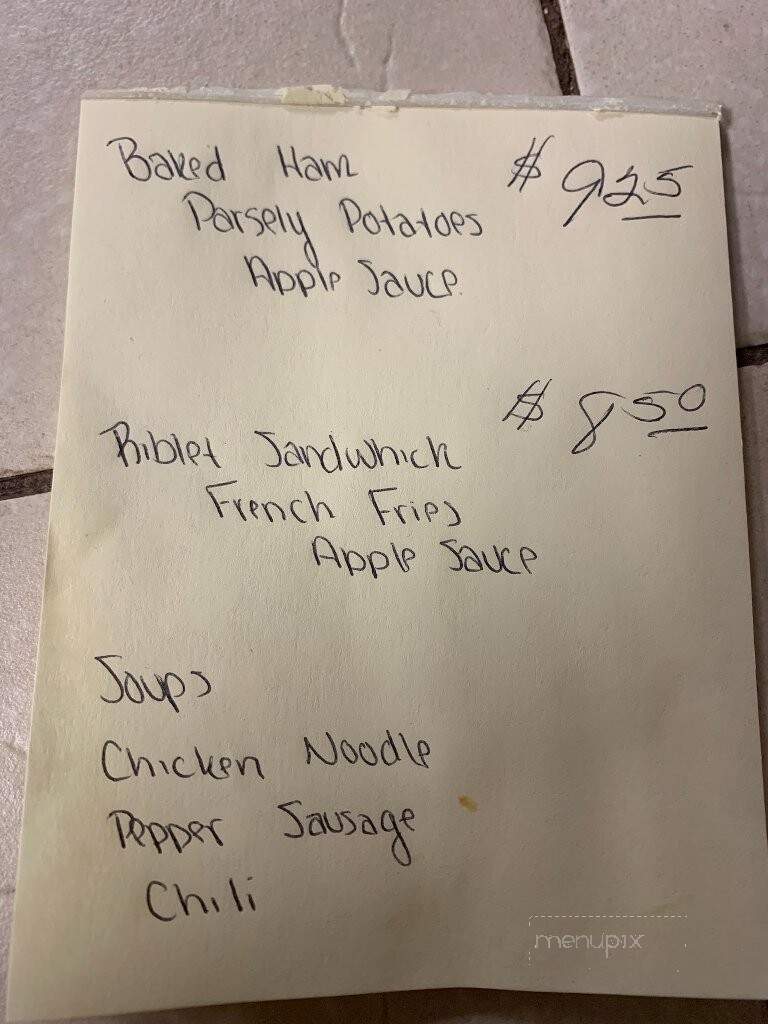 Baked Ham $ 9 25
Parsely Potatoes
Apple Sauce
$ 8 50
Riblet Sandwhick
French Fries
Apple Sauce
Soups
Chicken Noodle
Pepper Sausage
Chili
menupix